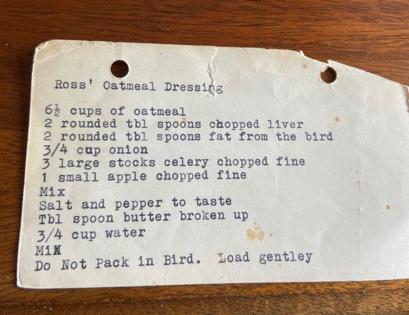 Ross' Oatmeal Dressing
6½ cups of oatmeal
2 rounded tbl spoons chopped liver
2 rounded tbl spoons fat from the bird
3/4 cup onion
3 large stocks celery chopped fine
1 small apple chopped fine
Mix
Salt and pepper to taste
Tbl spoon butter broken up
3/4 cup water
MiX
Do Not Pack in Bird.  Load gentley